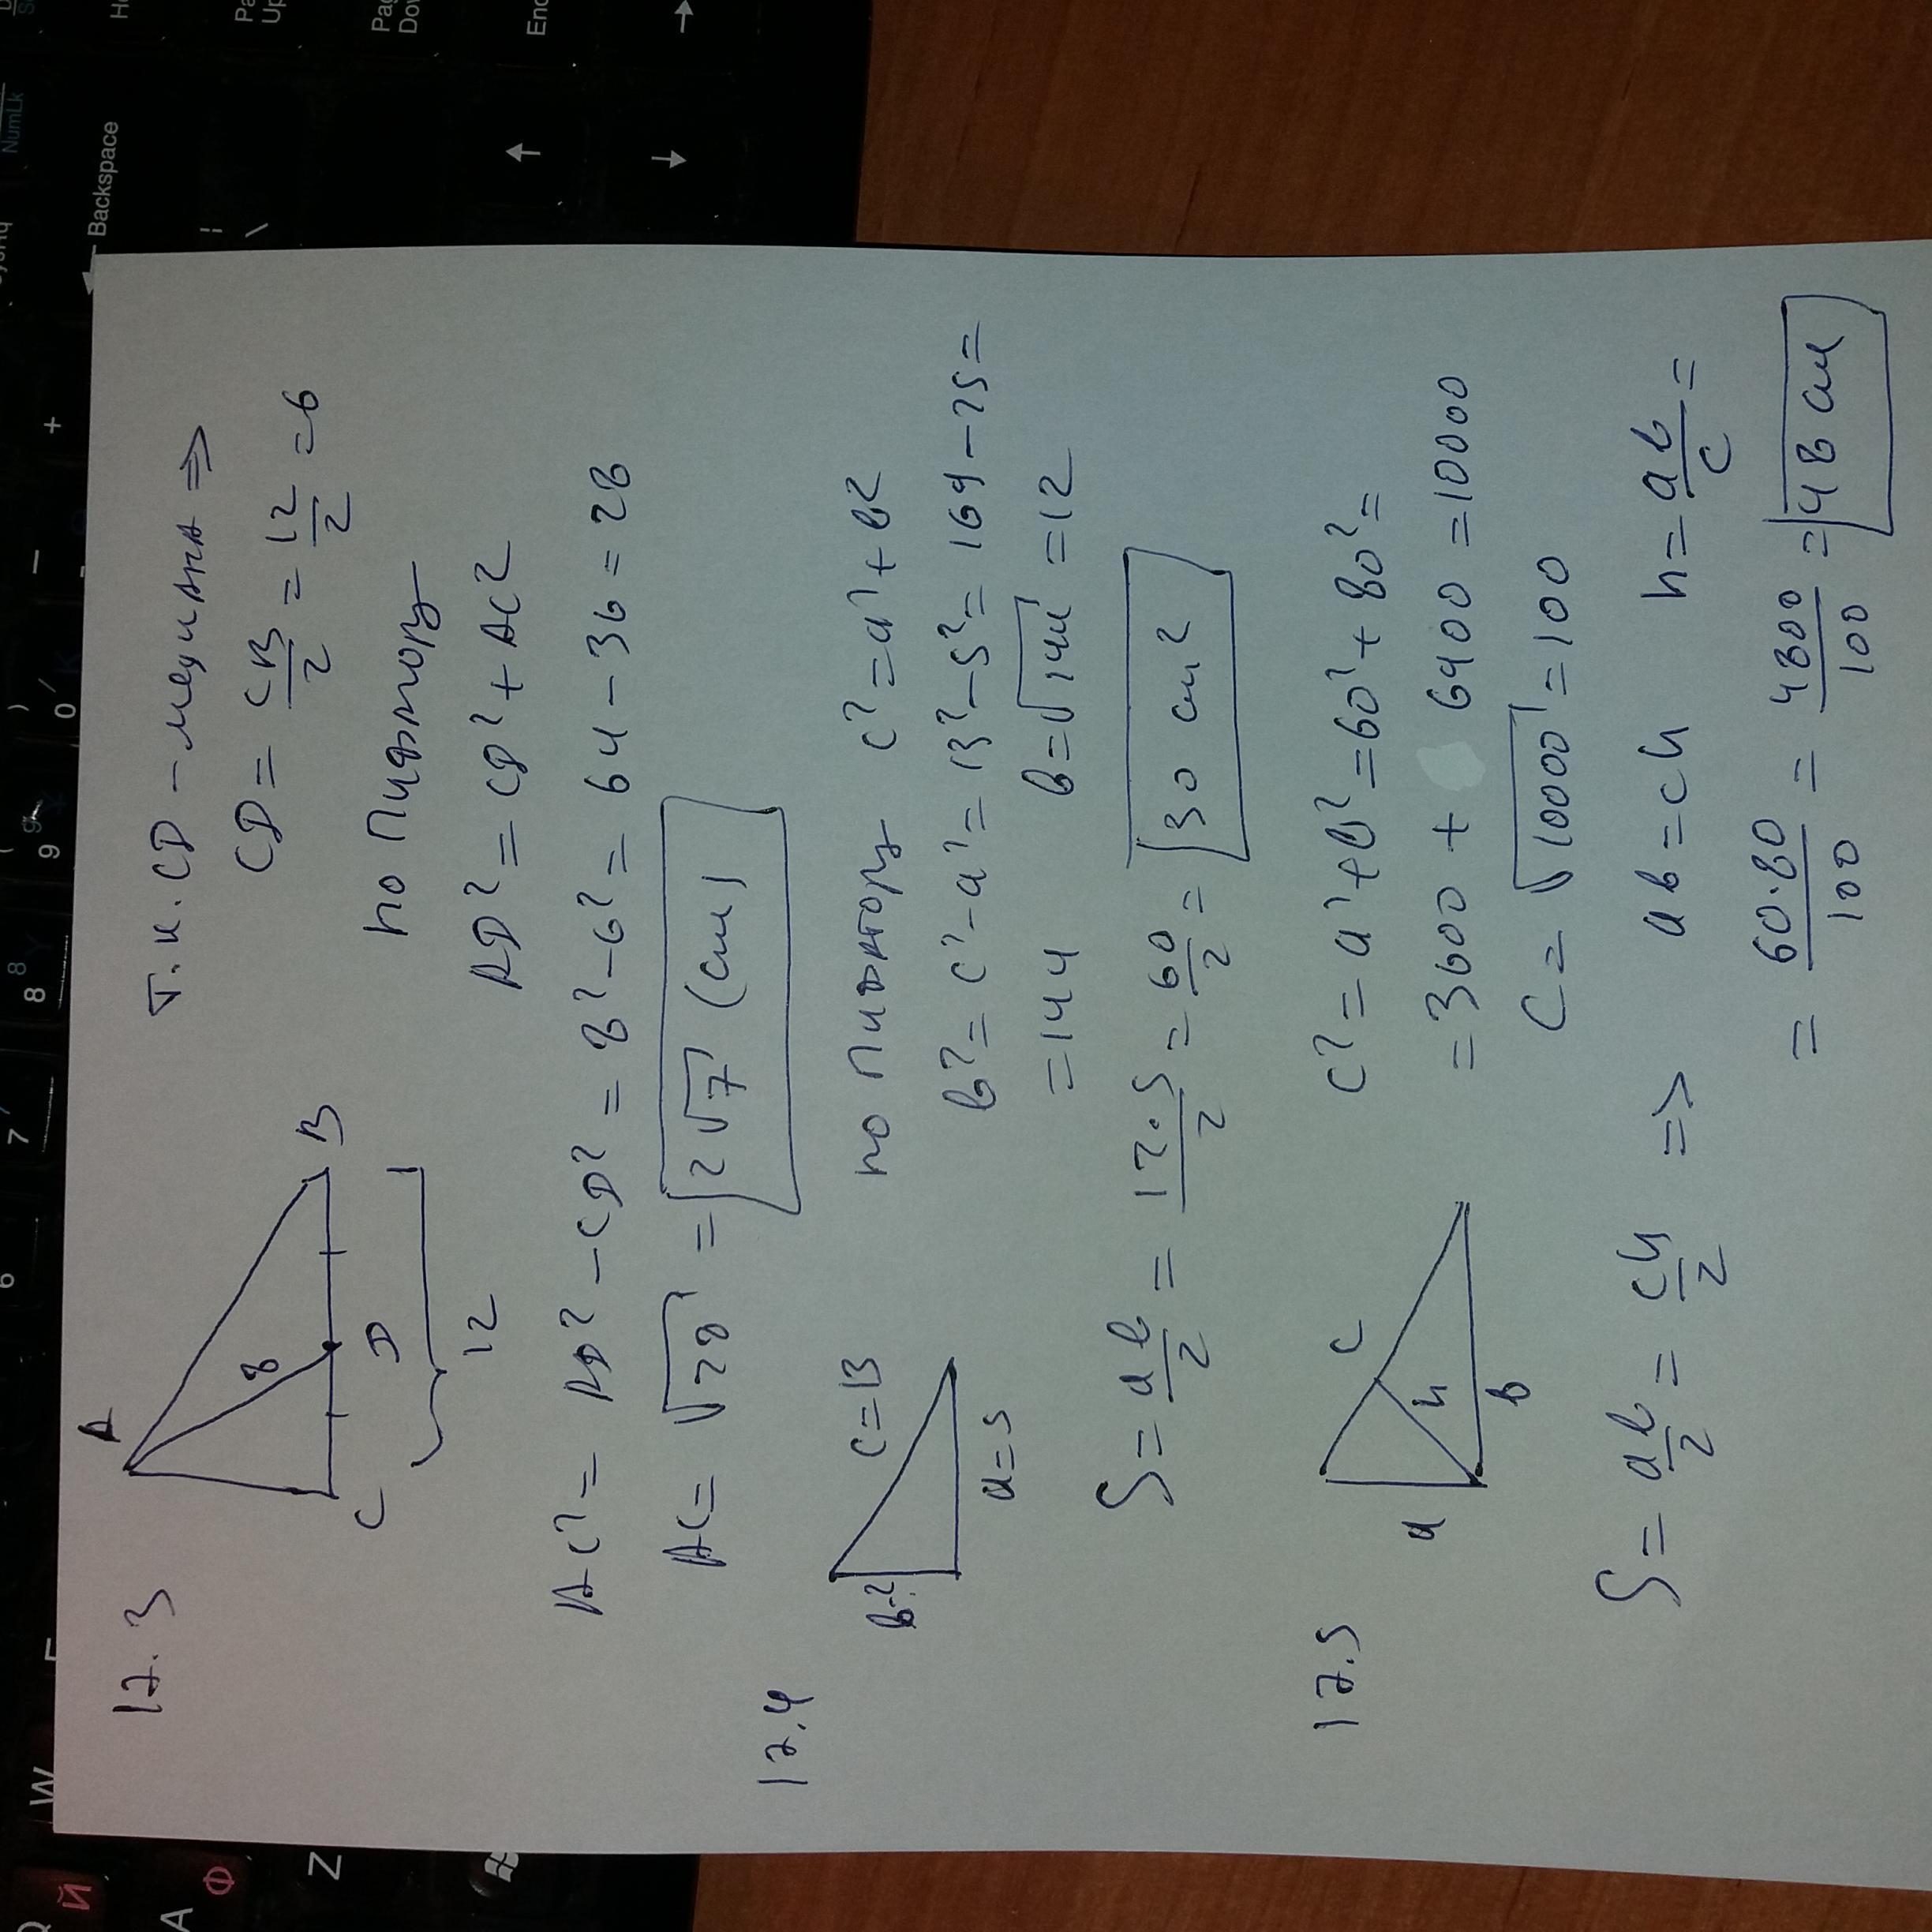 12.3
A
8
C
D
B
12
т.к. CD - медиана =>
CD = CB/2 = 12/2 = 6
по Пифагору
AD² = CD² + AC²
AC² = AD² - CD² = 8² - 6² = 64 - 36 = 28
AC = √28 = 2√7 (см)
12.4
b-?
c=13
a=5
по Пифагору c² = a² + b²
b² = c² - a² = 13² - 5² = 169 - 25 =
= 144 b = √144 = 12
S = ab/2 = 12·5/2 = 60/2 = 30 см²
12.5
a
h
c
b
c² = a² + b² = 60² + 80² =
= 3600 + 6400 = 10000
c = √10000 = 100
S = ab/2 = ch/2 => ab = ch h = ab/c =
= 60·80/100 = 4800/100 = 48 см
Backspace
NumLk
End
6
7
8
9
0
-
+
W
Й
A
Ф
Z